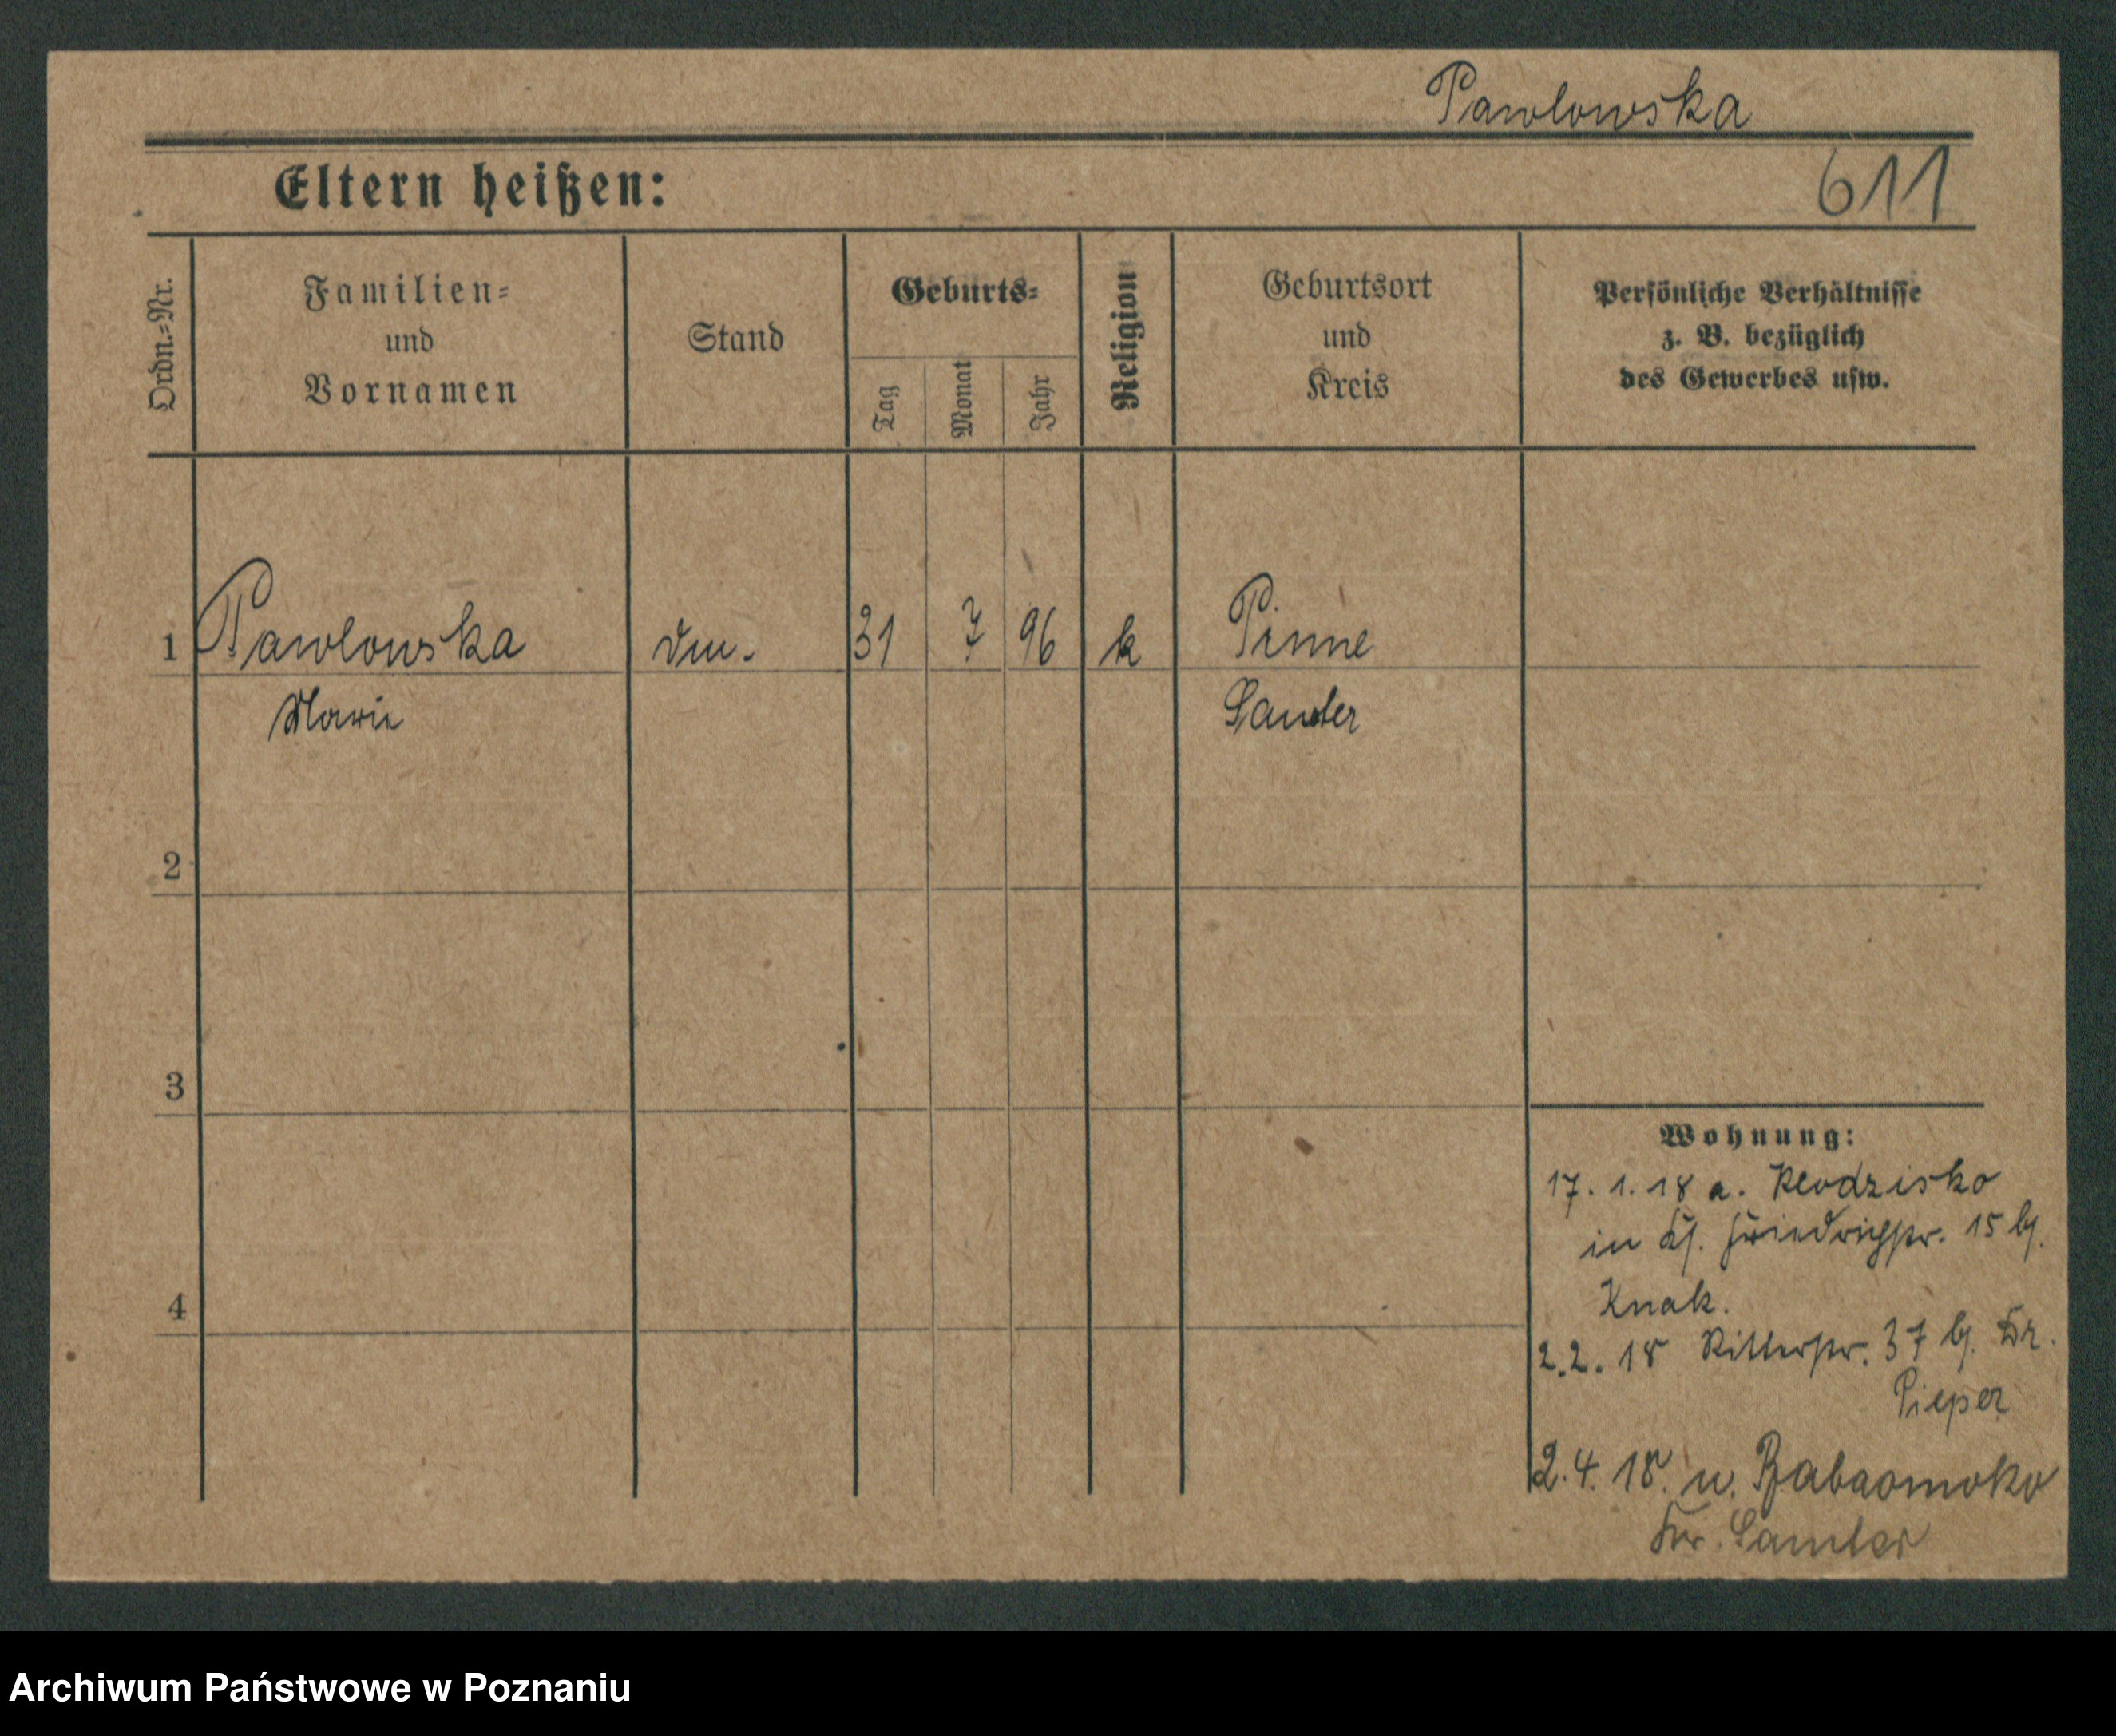 Pawlowska
Eltern heißen:
611
Ordn.=Nr.
Familien=
und
Vornamen
Stand
Geburts=
Tag
Monat
Jahr
Religion
Geburtsort
und
Kreis
Persönliche Verhältnisse
z. B. bezüglich
des Gewerbes usw.
1 Pawlowska 31 7 96 k Pinne
Marie Samter
2
3
4
Wohnung:
17. 1. 18 a. Klodzisko
in Friedrichstr. 15 bj.
Knak.
2.2. 18 Ritterstr. 37 bj. Dr.
Pieper
2.4. 18. n.
Kr. Samter
Archiwum Państwowe w Poznaniu